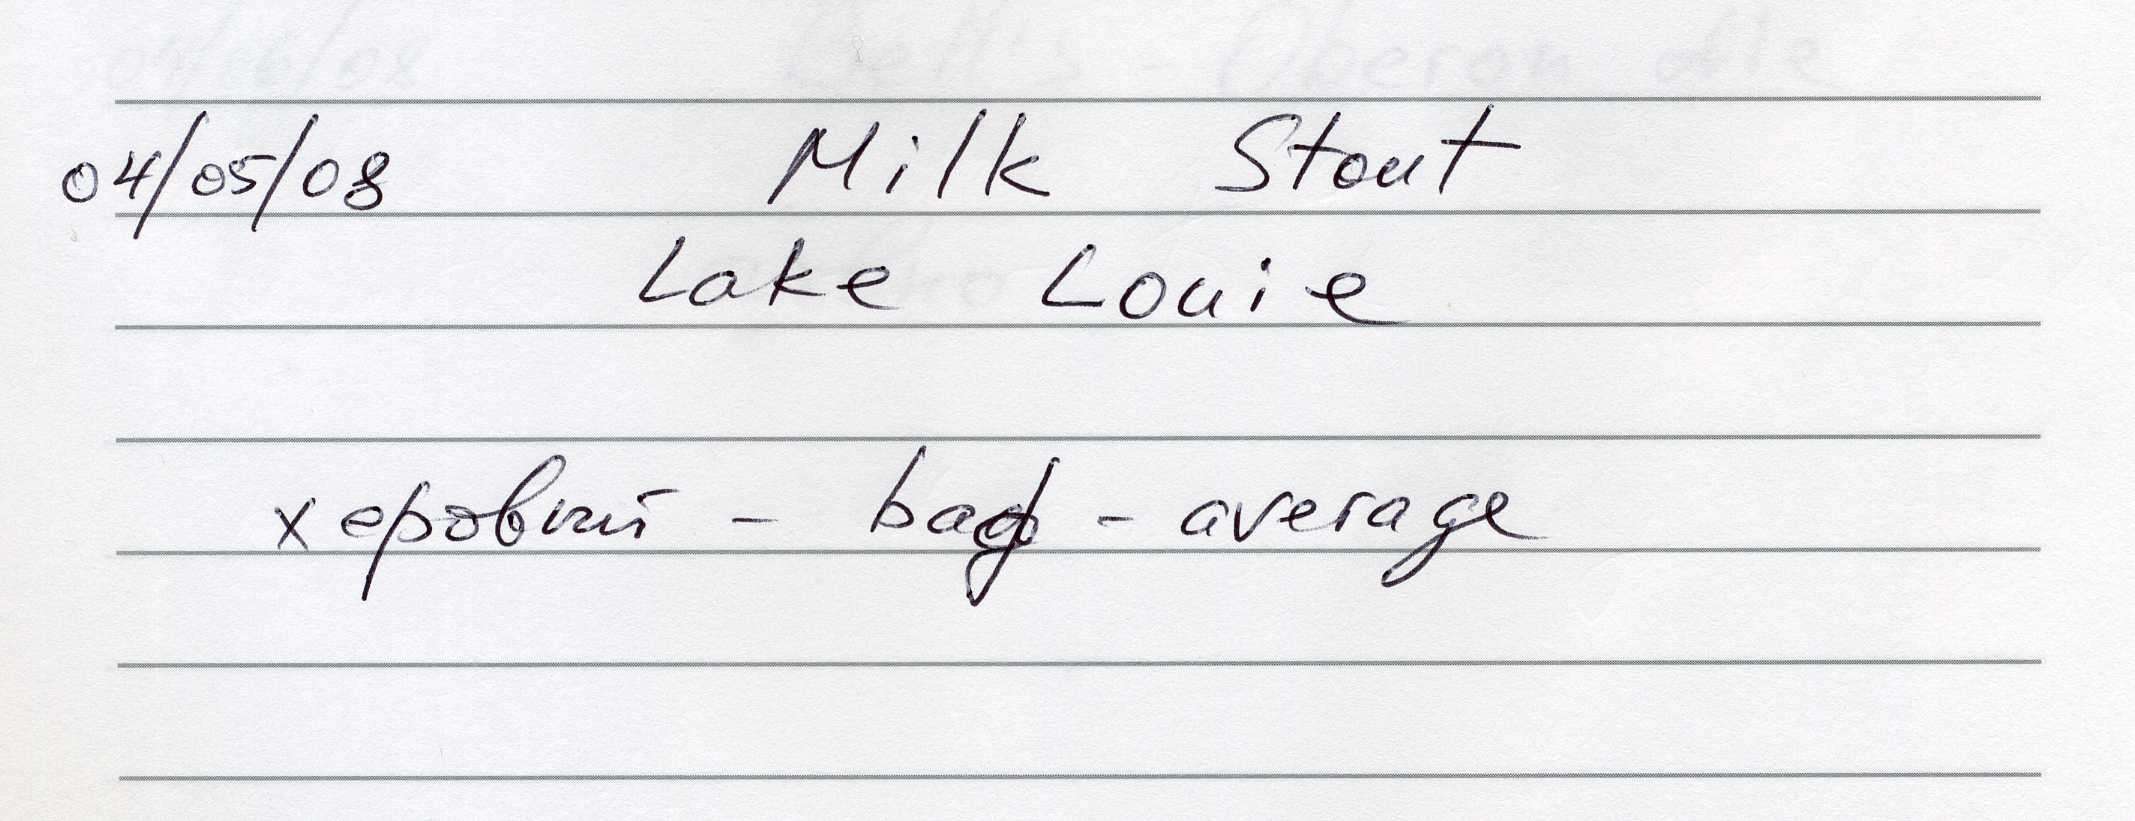 04/05/08 Milk Stout
Lake Louie
херовый - bad - average